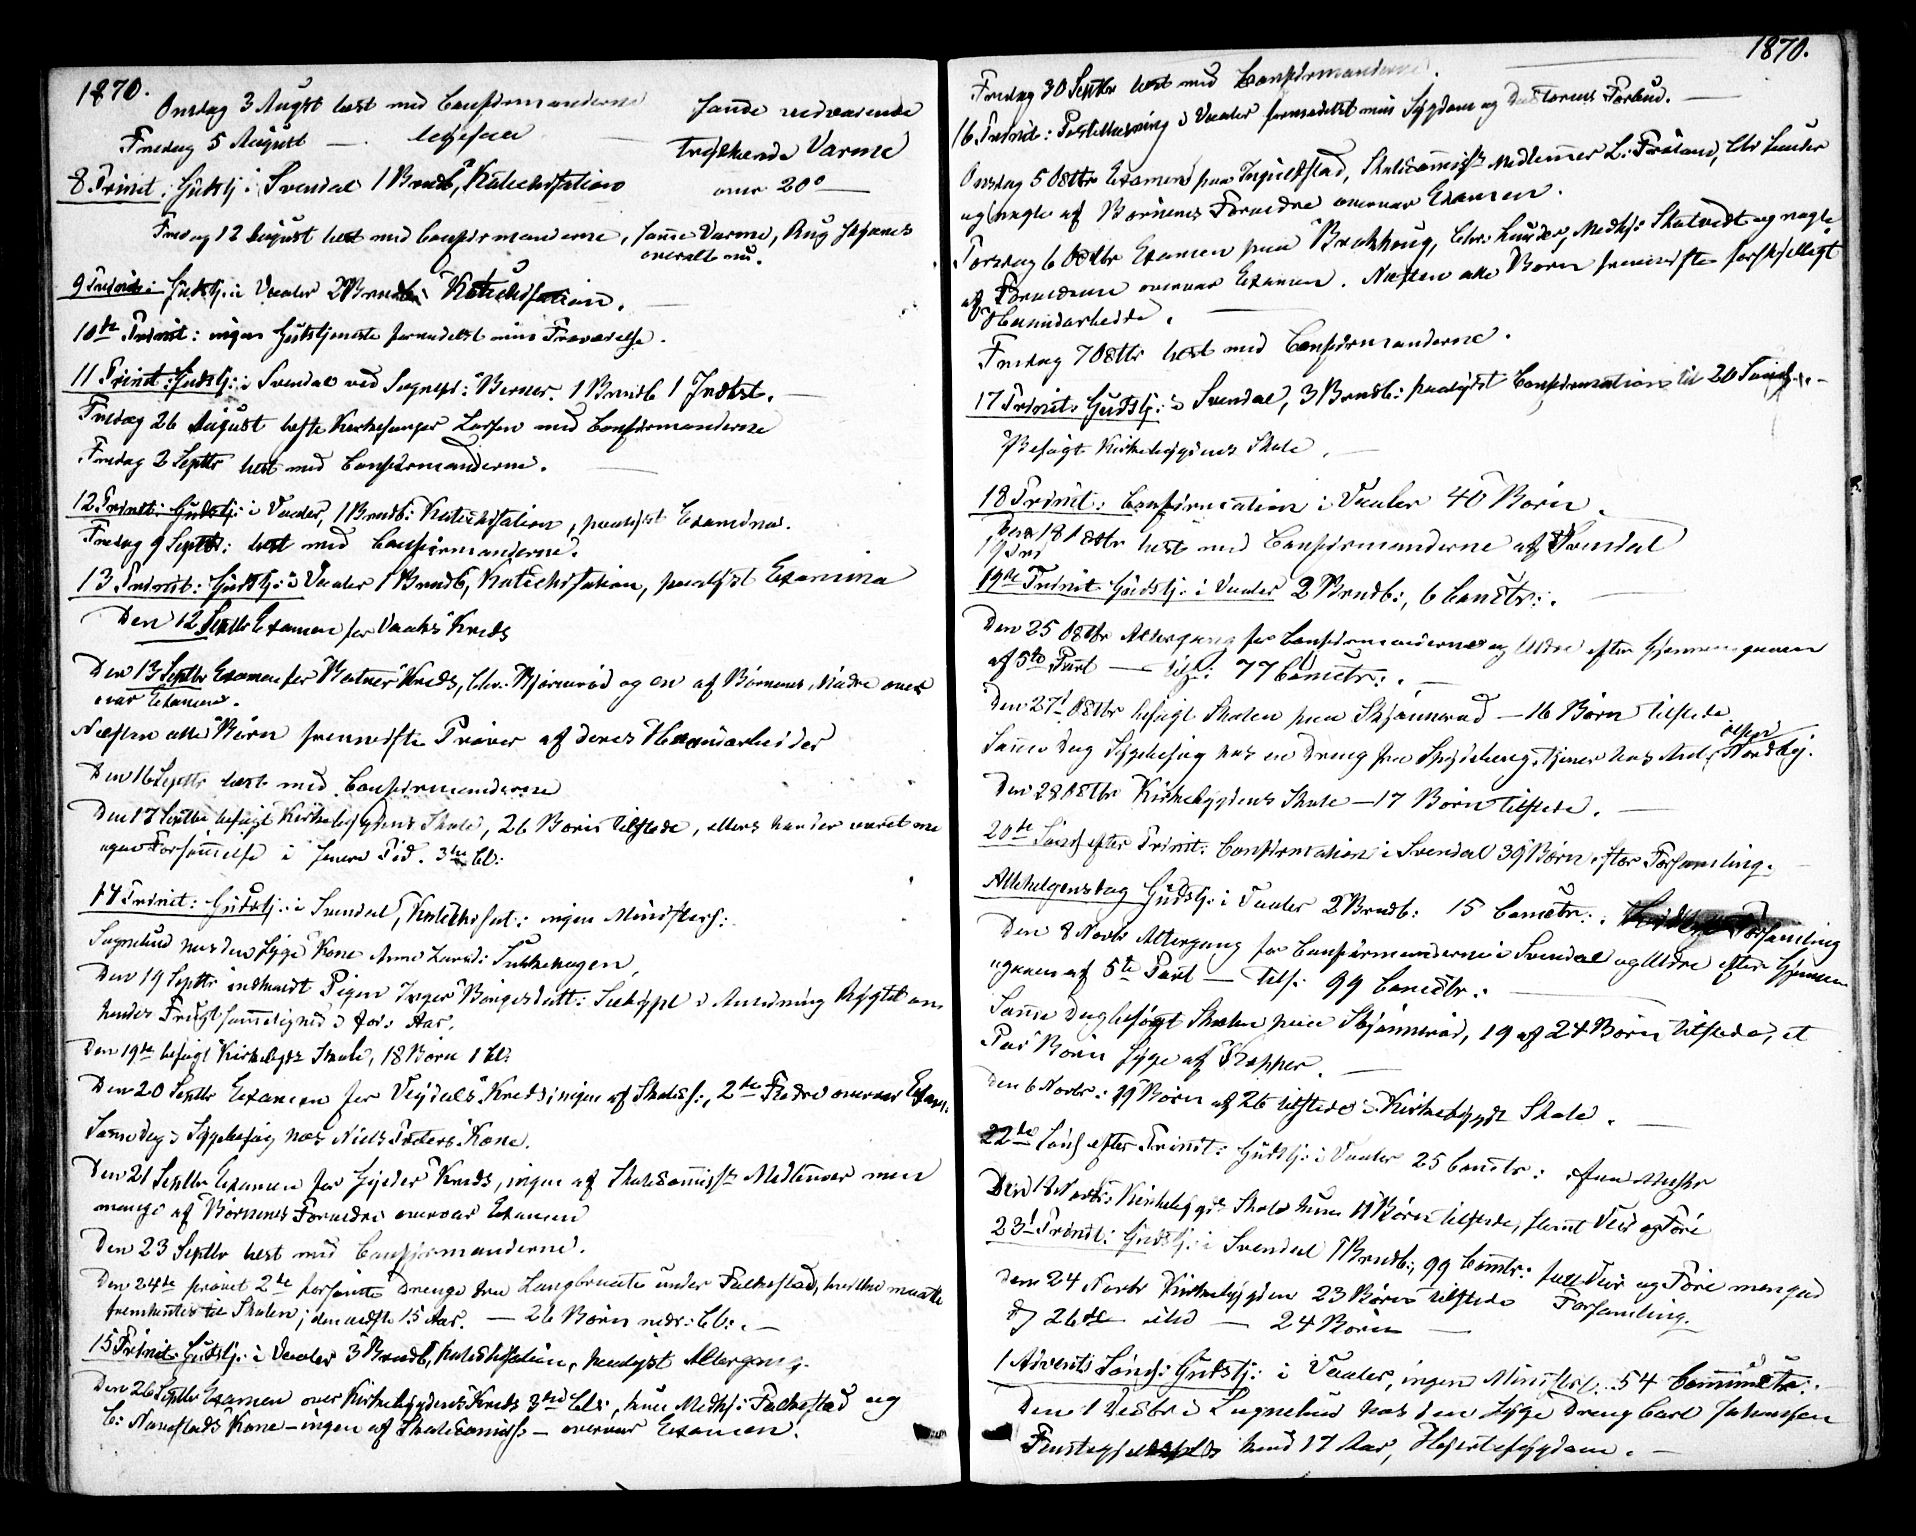 1870.
Onsdag 3 August læst med Confirmanderne
Fredag 5 August — ligesaa
vedvarende
trykkende Varme
over 20°
8 Trinit: Gudstj: i Svendal 1 Barnedb, Katechisation
Fredag 12 August læst med Confirmanderne, samme Varme, Rug
overalt nu.
9 Trinit: Gudstj: i Vaaler 2 Barnedb: Katechisation.
10de Trinit: ingen Gudstjeneste formedelst min Fraværelse.
11 Trinit: Gudstj: i Svendal ved Sognepr: Berner. 1 Barnedb 1
Fredag 26 August læste Kirkesanger Larsen med Confirmanderne
Fredag 2 Septbr læst med Confirmanderne.
12 Trinit: Gudstj: i Vaaler, 1 Barnedb: Katechisation, paalyst Examina.
Fredag 9 Septbr: læst med Confirmanderne.
13 Trinit: Gudstj: i Vaaler 1 Barnedb, Katechisation, paalyst Examina
Den 12 Septbr Examen for Kreds
Den 13 Septbr Examen for Kreds, Chr. Bjørnerød og en af Børnenes Mødre over
var Examen.
Næsten alle Børn fremviste Prøver af deres Haandarbeider
Den 16 Septbr læst med Confirmanderne
Den 17 Septbr besøgt Kirkebygdens Skole, 26 Børn tilstede, ellers har der været me
gen Forsømmelse i senere Tid. 3die Cl:
14 Trinit: Gudstj: i Svendal, Katechisat: ingen Ministers:
Sognebud hos den syge Kone Anne
Den 19 Septbr indkaldt Pigen Inger i Anledning Rygtet om
hendes Frugtsommelighed i for: Aar.
Den 19de besøgt Kirkebygds Skole, 18 Børn 1 Cl:
Den 20 Septbr Examen for Kreds, ingen af Skoles:, 2de Fædre overvar Exam:
Samme dag i Sygebesøg hos Niels Peders Kone.
Den 21 Septbr Examen for Kreds, ingen af Skolecommiss: Medlemmer men
mange af Børnenes Forældre overvar Examen
Den 23 Septbr læst med Confirmanderne.
Den 24de prøvet 2de forsømte Drenge fra Langbraate under Falkestad, hvilke maatte
til Skolen; den ældste 15 Aar. — 26 Børn nedr: Cl:. —
15 Trinit Gudstj: i Vaaler 3 Barnedb, Katechisation, paalyst Altergang.
Den 26 Septbr Examen over Kirkebygdens Kreds 3die Cl:, kun Medhj: Falkestad og
C: Navestads Kone – ingen af Skolecomiss: – overvar Examen.
1870.
Fredag 30 Septbr læst med Confirmanderne.
16 Trinit: Postillæsning i Vaaler formedelst min Sygdom og Doctorens Forbud. —
Onsdag 5 Octbr Examen paa Skolecommiss: Medlemmer L: Frøland, Chr Lunder
og nogle af Børnenes Forældre overvar Examen.
Torsdag 6 Octbr Examen paa Brakhoug, Chr: Lunder, Medhj: Skalvedt og nogle
af Forældrene overvar Examen. Næsten alle Børn fremviste forskjelligt
Haandarbeide. —
Fredag 7 Octbr læst med Confirmanderne.
17 Trinit: Gudstj: i Svendal, 3 Barnedb: paalyst Confirmation til 20 Sønd:.–
Besøgt Kirkebygdens Skole. —
18 Trinit: Confirmation i Vaaler 40 Børn.
18 Octbr læst med Confirmanderne af Svendal
19de Trinit Gudstj: i Vaaler 2 Barnedb:, 6 Comctr:. —
Den 25 Octbr Altergang for Confirmanderne og Ældre efter Gjennemgaaen
af 5te Part — tils: 77 Comctr:. —
Den 27d Octbr besøgt Skolen paa Skjønnerød – 16 Børn tilstede
Samme Dag Sygebesøg hos en Dreng fra Spydeberg, tjener hos Nordby.
Den 28 Octbr Kirkebygdens Skole – 17 Børn tilstede. —
20de Sønd efter Trinit: Confirmation i Svendal 39 Børn, stor Forsamling. —
Allehelgensdag Gudstj: i Vaaler 2 Barnedb: 15 Comctr:. Forsamling
Den 8 Novbr Altergang for Confirmanderne i Svendal og Ældre efter Gjennem
gaaen af 5te Part — tils: 99 Comctr.: —
Samme Dag besøgt Skolen paa Skjønnerød, 19 af 24 Børn tilstede, et
Par Børn syge af Kopper. —
Den 6 Novbr.: 19 Børn af 26 tilstede i Kirkebygds Skole. —
22de Sønd efter Trinit: Gudstj: i Vaaler 25 Comctr:
Den 18 Novbr: Kirkebygds Skole kun 11 Børn tilstede, slemt Veir og Føre
23d Trinit: Gudstj: i Svendal 1 Barnedb:, 99 Comctr: Veir og Føre men god
Forsamling.
Den 24 Novbr Kirkebygden 23 Børn tilstede
Den 26de — — 24 Børn —
1 Advents Sønd: Gudstj: i Vaaler, ingen Ministerl: 54 Communictr:.
Den 1 Decbr i Sognebud hos den syge Dreng Carl Johansen
17 Aar, Hjertesygdom. —